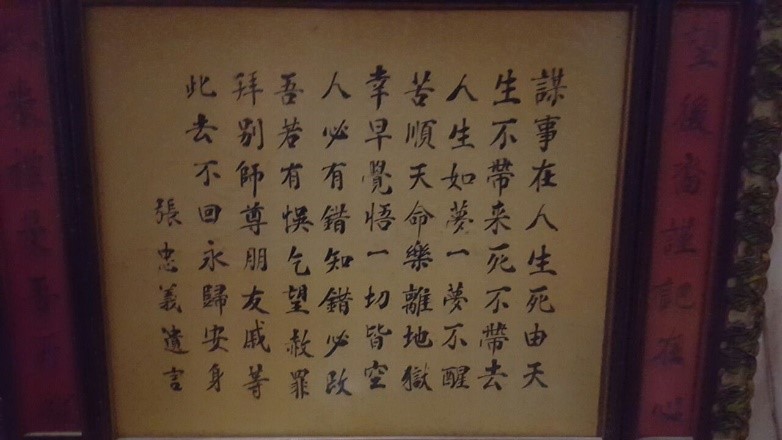 望後裔謹記在心
謀事在人生死由天
生不帶来死不帶去
人生如夢一夢不醒
苦順天命樂離地獄
幸早覺悟一切皆空
人必有錯知錯必改
吾若有悞乞望赦罪
拜別師尊朋友戚等
此去不回永歸安身
張忠義遺言